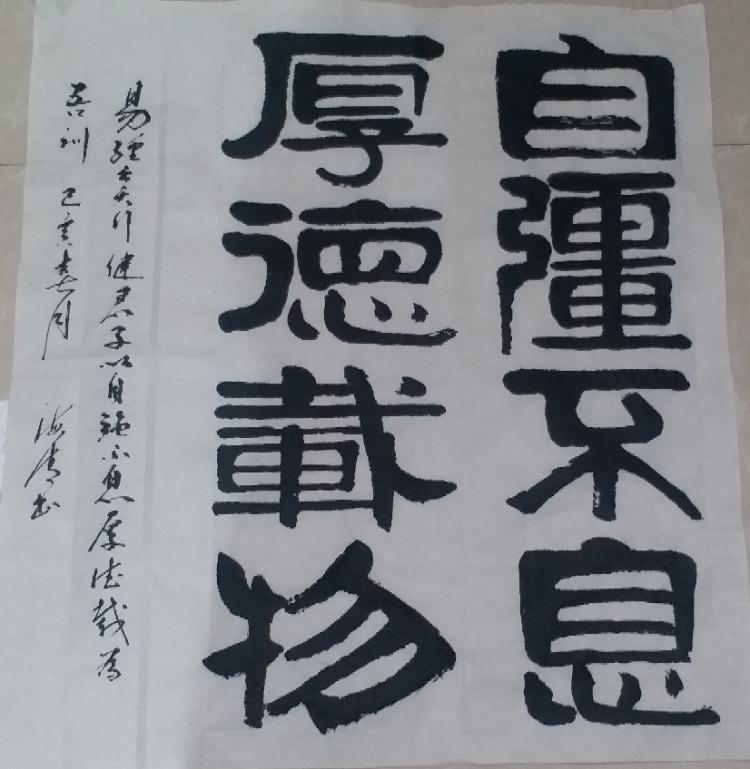 自彊不息
厚德載物
易經天行健君子以自強不息厚德載為
吾訓 己亥月 海清书